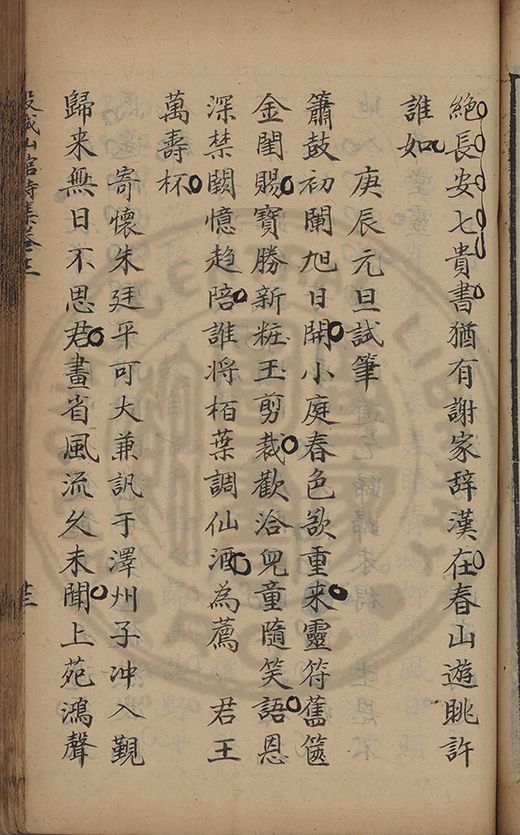 絕長安七貴書猶有謝家辭漢在春山遊眺許
誰如
庚辰元旦試筆
簫鼓初闌旭日開小庭春色欲重来靈符舊篋
金閨賜寶勝新粧玉剪裁歡洽兒童隨笑語恩
深禁闕憶趨陪誰將栢葉調仙酒為薦 君王
萬壽杯
寄懷朱廷平可大兼訊于澤州子冲入覲
歸来無日不思君畫省風流久未聞上苑鴻聲
榖城山館詩集卷之